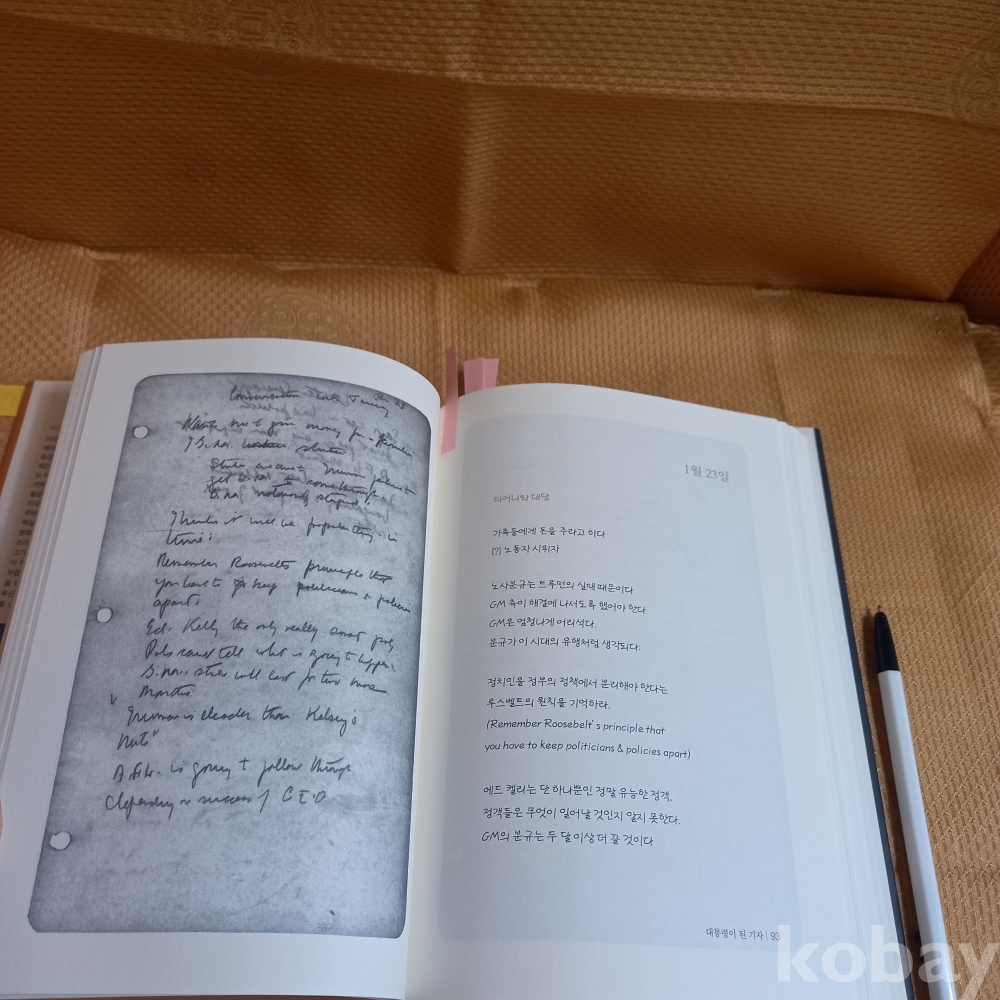 Conversation
Wants
strike
Truman
get
to come through
notoriously stupid
Thinks it will be
time!
Remember Roosevelts principle that
you have to keep politicians & policies
apart.
Ed. Kelly the only really smart pol,
Pols cannot tell what is going to happen.
strike will last for two more
months
"Truman is deader than Kelsey's
Nuts"
is going to follow through
depending on success of
1월 23일
티어니와 대담
가족들에게 돈을 주라고 하다
[?] 노동자 시위자
노사분규는 트루먼의 실패 때문이다
GM 측이 해결에 나서도록 했어야 한다
GM은 엄청나게 어리석다.
분규가 이 시대의 유행처럼 생각되다.
정치인을 정부의 정책에서 분리해야 한다는
루스벨트의 원칙을 기억하라.
(Remember Roosebelt's principle that
you have to keep politicians & policies apart)
에드 켈리는 단 하나뿐인 정말 유능한 정객,
정객들은 무엇이 일어날 것인지 알지 못한다.
GM의 분규는 두 달 이상 더 끌 것이다
대통령이 된 기자 | 93
kobay